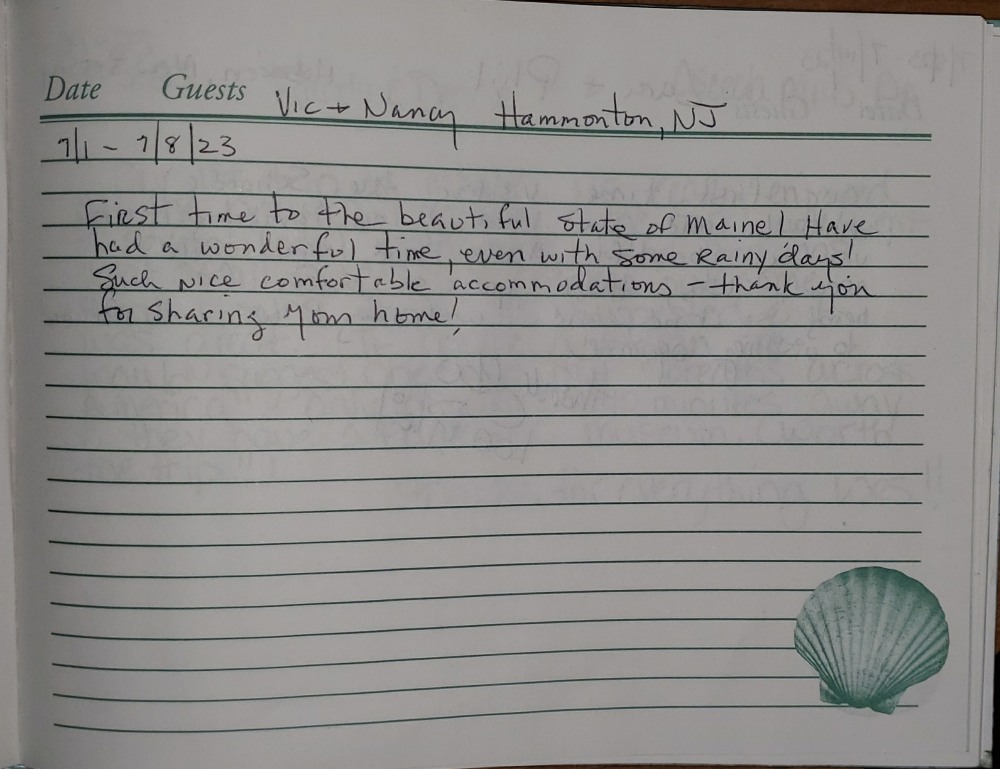 Date Guests Vic + Nancy Hammonton, NJ
7/1 - 7/8/23
First time to the beautiful state of Maine! Have
had a wonderful time, even with some Rainy days!
Such nice comfortable accommodations - thank you
for sharing your home!